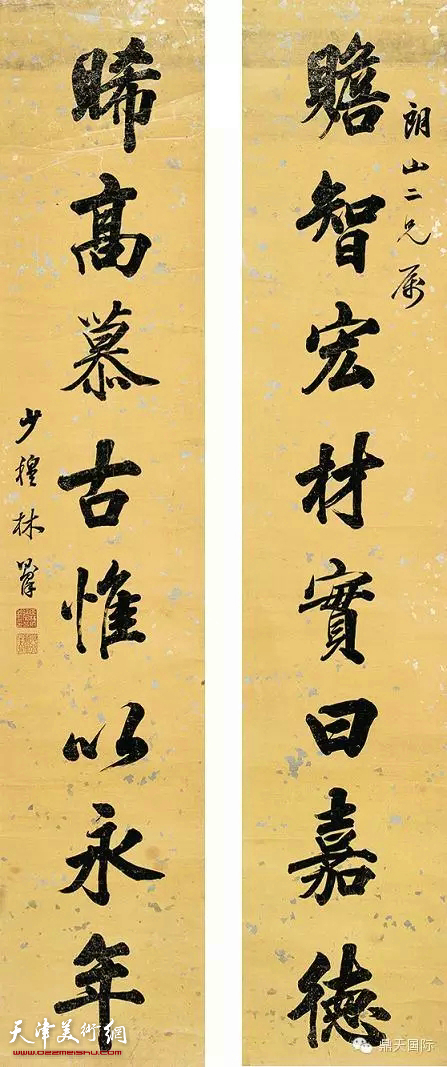 朗山二兄属
贍智宏材實曰嘉德
晞高慕古惟以永年
少穆林則徐
天津美術網
www.022meishu.com
鼎天国际